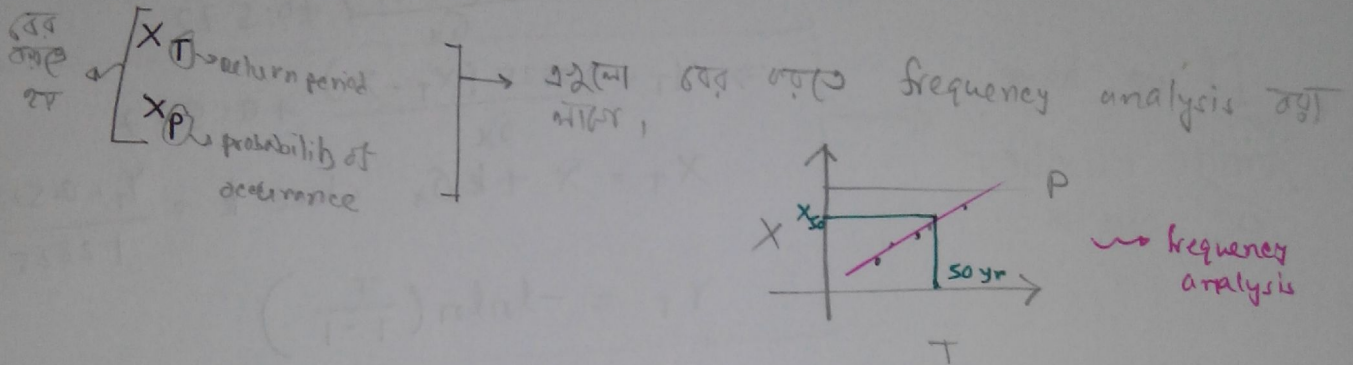 বের
করতে
হয়
X T → return period
X P → probability of
occurance
এগুলো বের করতে frequency analysis করা
লাগে,
P
X50
X
50 yr
T
frequency
analysis